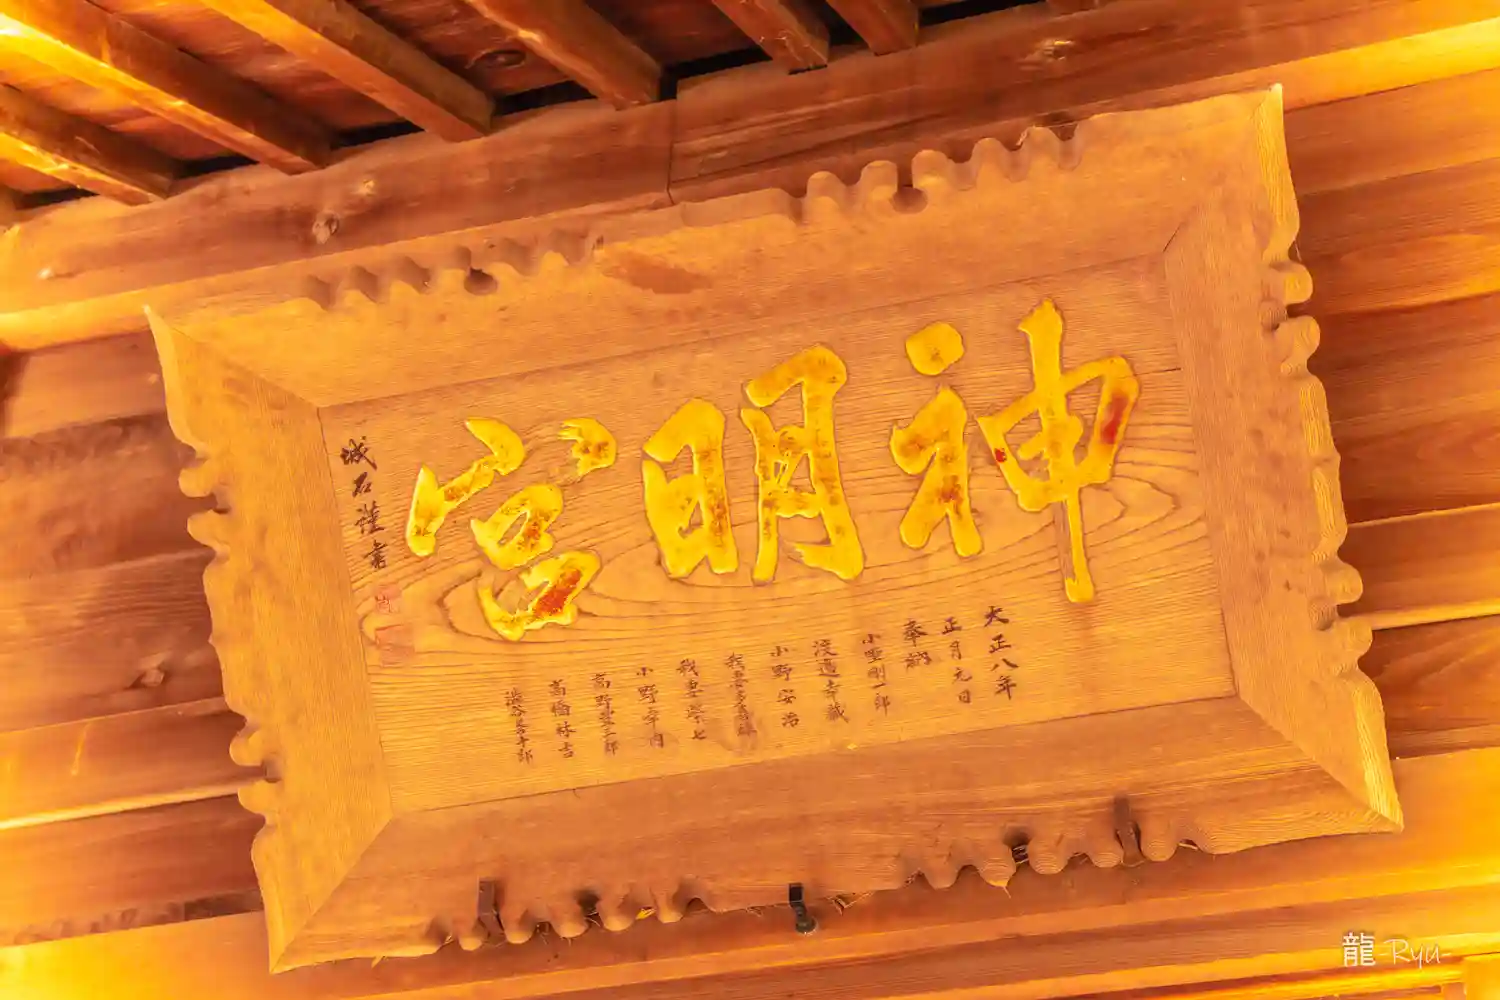 神明宮
大正八年
正月元日
奉納
小野剛一郎
渡邉幸蔵
小野安治
我妻多喜雄
我妻榮七
小野寅内
高野榮三郎
高橋林吉
澁谷長十郎
城石謹書
龍-Ryu-